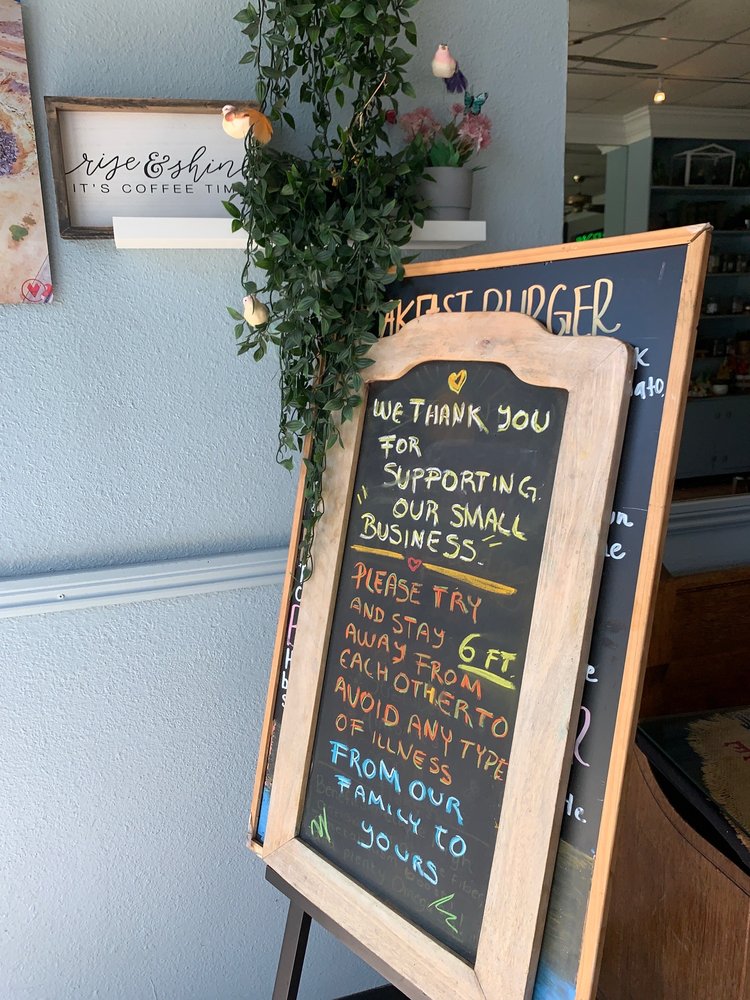 rise & shine
IT'S COFFEE TIME
BURGER
WE THANK YOU
FOR
SUPPORTING
OUR SMALL
BUSINESS
PLEASE TRY
AND STAY 6 FT.
AWAY FROM
EACH OTHER TO
AVOID ANY TYPE
OF ILLNESS
FROM OUR
FAMILY TO
YOURS